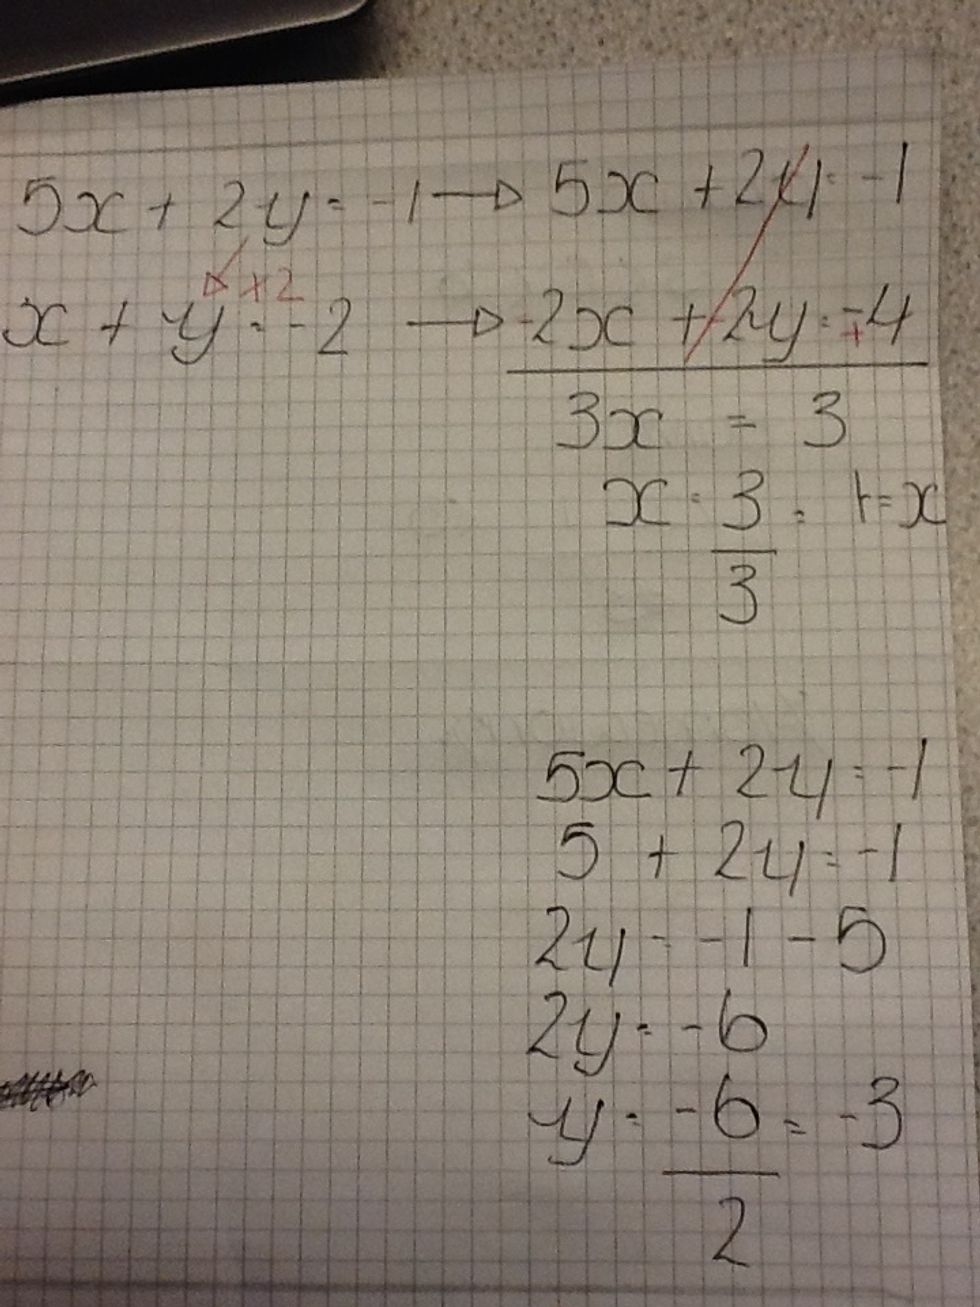 5x + 2y = -1 → 5x + 2y = -1
×2
x + y = -2 → -2x + -2y = -+4
3x = 3
x = 3/3 = 1 = x
5x + 2y = -1
5 + 2y = -1
2y = -1 - 5
2y = -6
y = -6/2 = -3